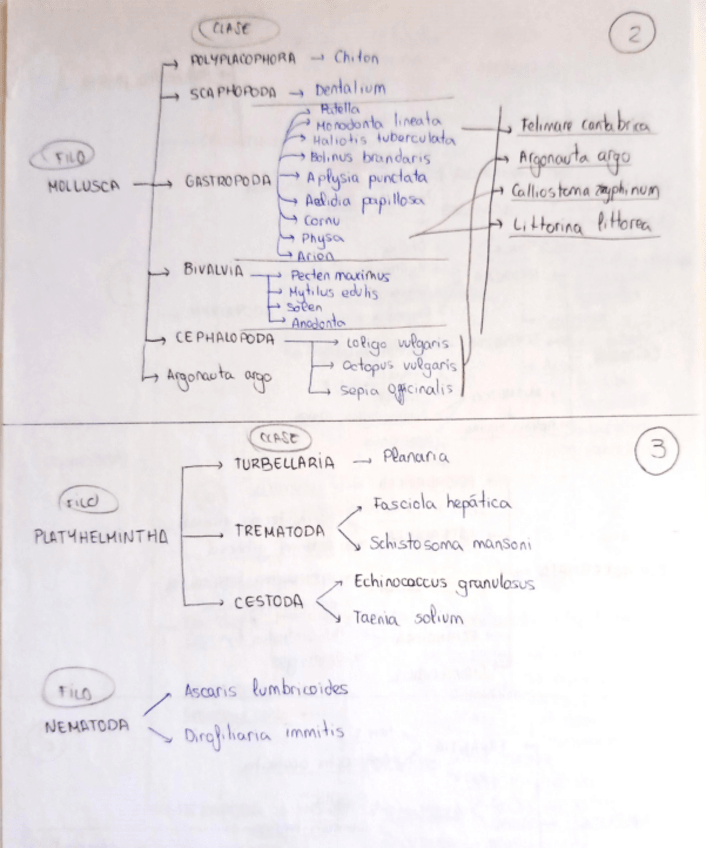 CLASE
2
POLYPLACOPHORA → Chiton
SCAPHOPODA → Dentalium
FILO
MOLLUSCA
GASTROPODA
Patella
Monodonta lineata
Haliotis tuberculata
Bolinus brandaris
Aplysia punctata
Aelidia papillosa
Cornu
Physa
Arion
Felimare cantabrica
Argonauta argo
Calliostoma zizyphinum
Littorina littorea
BIVALVIA
Pecten maximus
Mytilus edulis
Solen
Anodonta
CEPHALOPODA
Loligo vulgaris
Octopus vulgaris
Sepia officinalis
Argonauta argo
CLASE
3
TURBELLARIA → Planaria
FILO
PLATYHELMINTHA
TREMATODA
Fasciola hepática
Schistosoma mansoni
CESTODA
Echinococcus granulosus
Taenia solium
FILO
NEMATODA
Ascaris lumbricoides
Dirofiliaria immitis